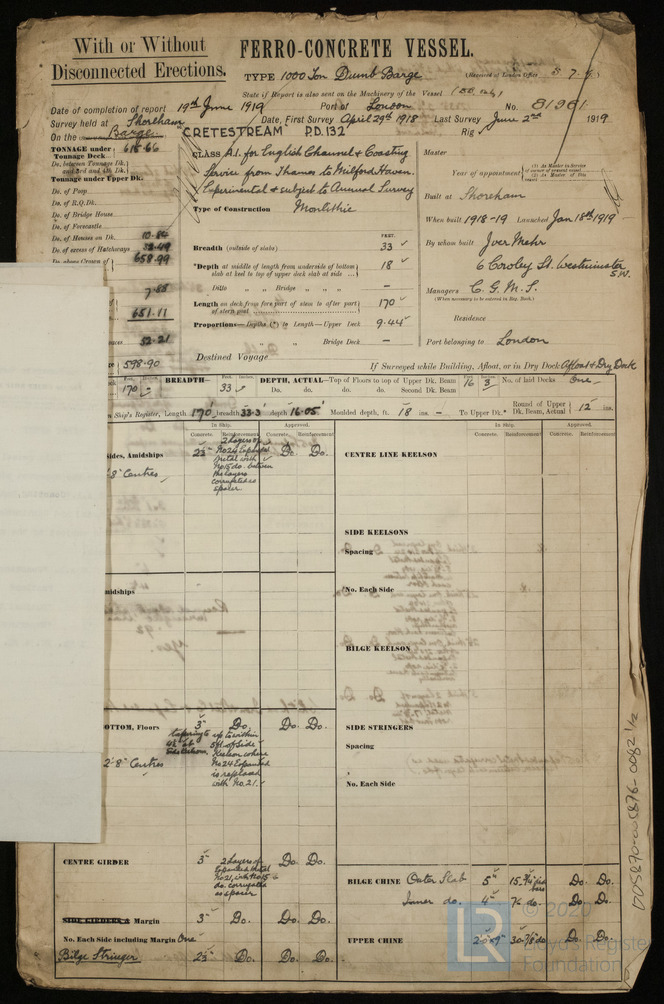 With or Without
Disconnected Erections.
FERRO-CONCRETE VESSEL.
TYPE 1000 Ton Dumb Barge
(Received at London Office 5 7
State if Report is also sent on the Machinery of the Vessel
Date of completion of report 19th June 1919 Port of London No. 81961
Survey held at Shoreham Date, First Survey April 29th 1918 Last Survey June 2nd 1919
On the Barge "CRETESTREAM" P.D. 132 Rig
TONNAGE under Tonnage Deck 615.66
Do. between Tonnage Dk. and 3rd and 4th Dk.
Tonnage under Upper Dk.
Do. of Poop
Do. of R.Q. Dk.
Do. of Bridge House
Do. of Forecastle
Do. of Houses on Dk. 10.84
Do. of excess of Hatchways 32.49
Do. above Crown of
658.99
7.88
651.11
52.21
598.90
CLASS A.1. for English Channel & Coasting
Service from Thames to Milford Haven.
Experimental & subject to Annual Survey
Type of Construction Monlithic
FEET.
Breadth (outside of slabs) 33
*Depth at middle of length from underside of bottom slab at keel to top of upper deck slab at side 18
Ditto " " Bridge " "
Length on deck from fore part of stem to after part of stern post 170
Proportions—Depths (*) to Length—Upper Deck 9.44
" " Bridge Deck —
Destined Voyage
Master
Year of appointment
(1) As Master in Service of owner of present vessel
(2) As Master of this
Built at Shoreham
When built 1918-19 Launched Jan 18th 1919
By whom built
6 Cowley St. Westminster S.W.
Managers C. G. M. S.
(When necessary to be entered in Reg. Book.)
Residence
Port belonging to London
If Surveyed while Building, Afloat, or in Dry Dock Afloat & Dry Dock
170 BREADTH— 33 DEPTH, ACTUAL—Top of Floors to top of Upper Dk. Beam 16 3 No. of laid Decks One
Do. do. do. Second Dk. Beam
Ship's Register, Length 170' breadth 33.3 depth 16.05' Moulded depth, ft. 18 ins. — To Upper Dk. Round of Upper Dk. Beam, Actual 12 ins.
In Ship. Approved. In Ship. Approved.
Concrete. Reinforcement. Concrete. Reinforcement. Concrete. Reinforcement. Concrete. Reinforcement.
Sides, Amidships 2½" 2 layers of No 24 Expanded metal with No 15 do. between the layers corrugated as spacer Do. Do.
8" Centres
CENTRE LINE KEELSON
SIDE KEELSONS
Spacing
No. Each Side
midships
BILGE KEELSON
BOTTOM, Floors 3" Do. Do. Do.
tapering to 4½" at
up to within 3ft. of Side Keelson where No 24 Expanded is replaced with No. 21.
2'-8" Centres
SIDE STRINGERS
Spacing
No. Each Side
CENTRE GIRDER 3" 2 layers of Expanded Metal No 21, with No 15 do. corrugated as spacer Do. Do.
SIDE GIRDERS & Margin 3" Do. Do. Do.
No. Each Side including Margin One
Bilge Stringer 2½" Do. Do. Do.
BILGE CHINE Outer Slab 5" 15-¾" bars Do. Do.
Inner do. 4" 7⅝ do. Do. Do.
UPPER CHINE 2'-0"x9" 30-⅞ do Do. Do.
DOS890-005876-0082 1/2
LR
© 2020
Lloyd's Register
Foundation